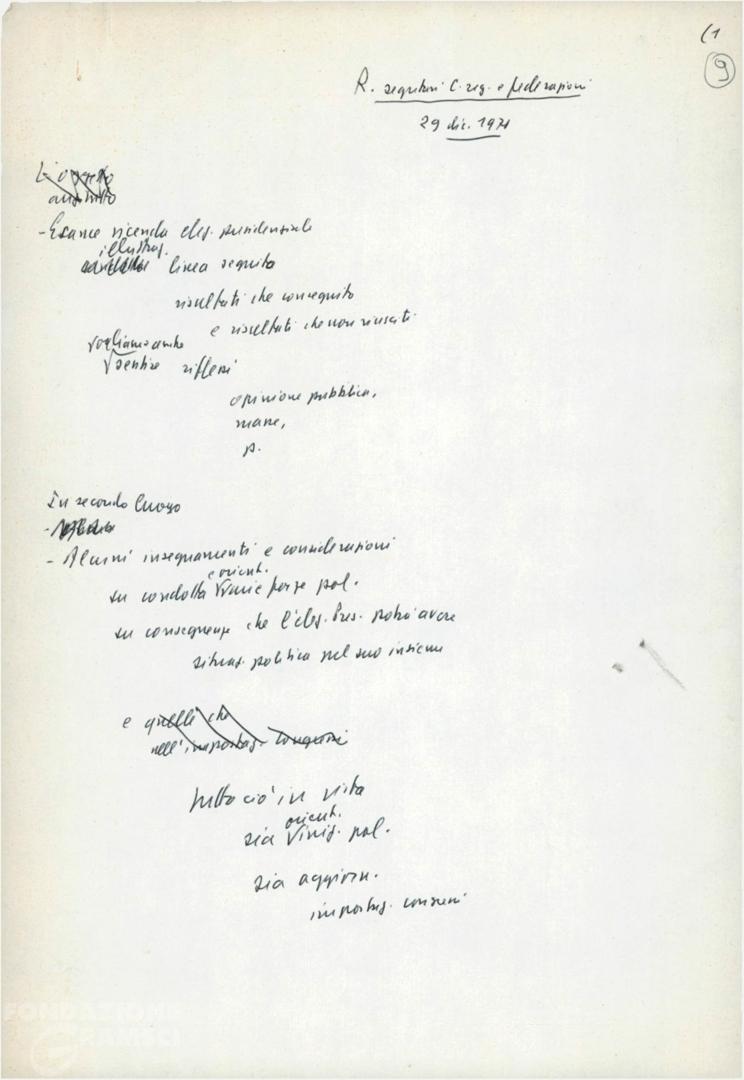 (1
9
R. segretari C. reg. e federazioni
29 dic. 1971
L'oggetto
- Esame vicenda elez. presidenziale
illustraz.
linea seguita
risultati che conseguito
e risultati che non riusciti
vogliamo anche
sentire riflessi
opinione pubblica,
masse,
p.
In secondo luogo
- Alcuni insegnamenti e considerazioni
e orient.
su condotta varie forze pol.
su conseguenze che l'elez. Pres. potrà avere
situaz. politica nel suo insieme
e quelle che
nell'impostaz. congressi
tutto ciò in vista
orient.
sia iniz. pol.
sia aggiorn.
impostaz. congressi
FONDAZIONE
GRAMSCI